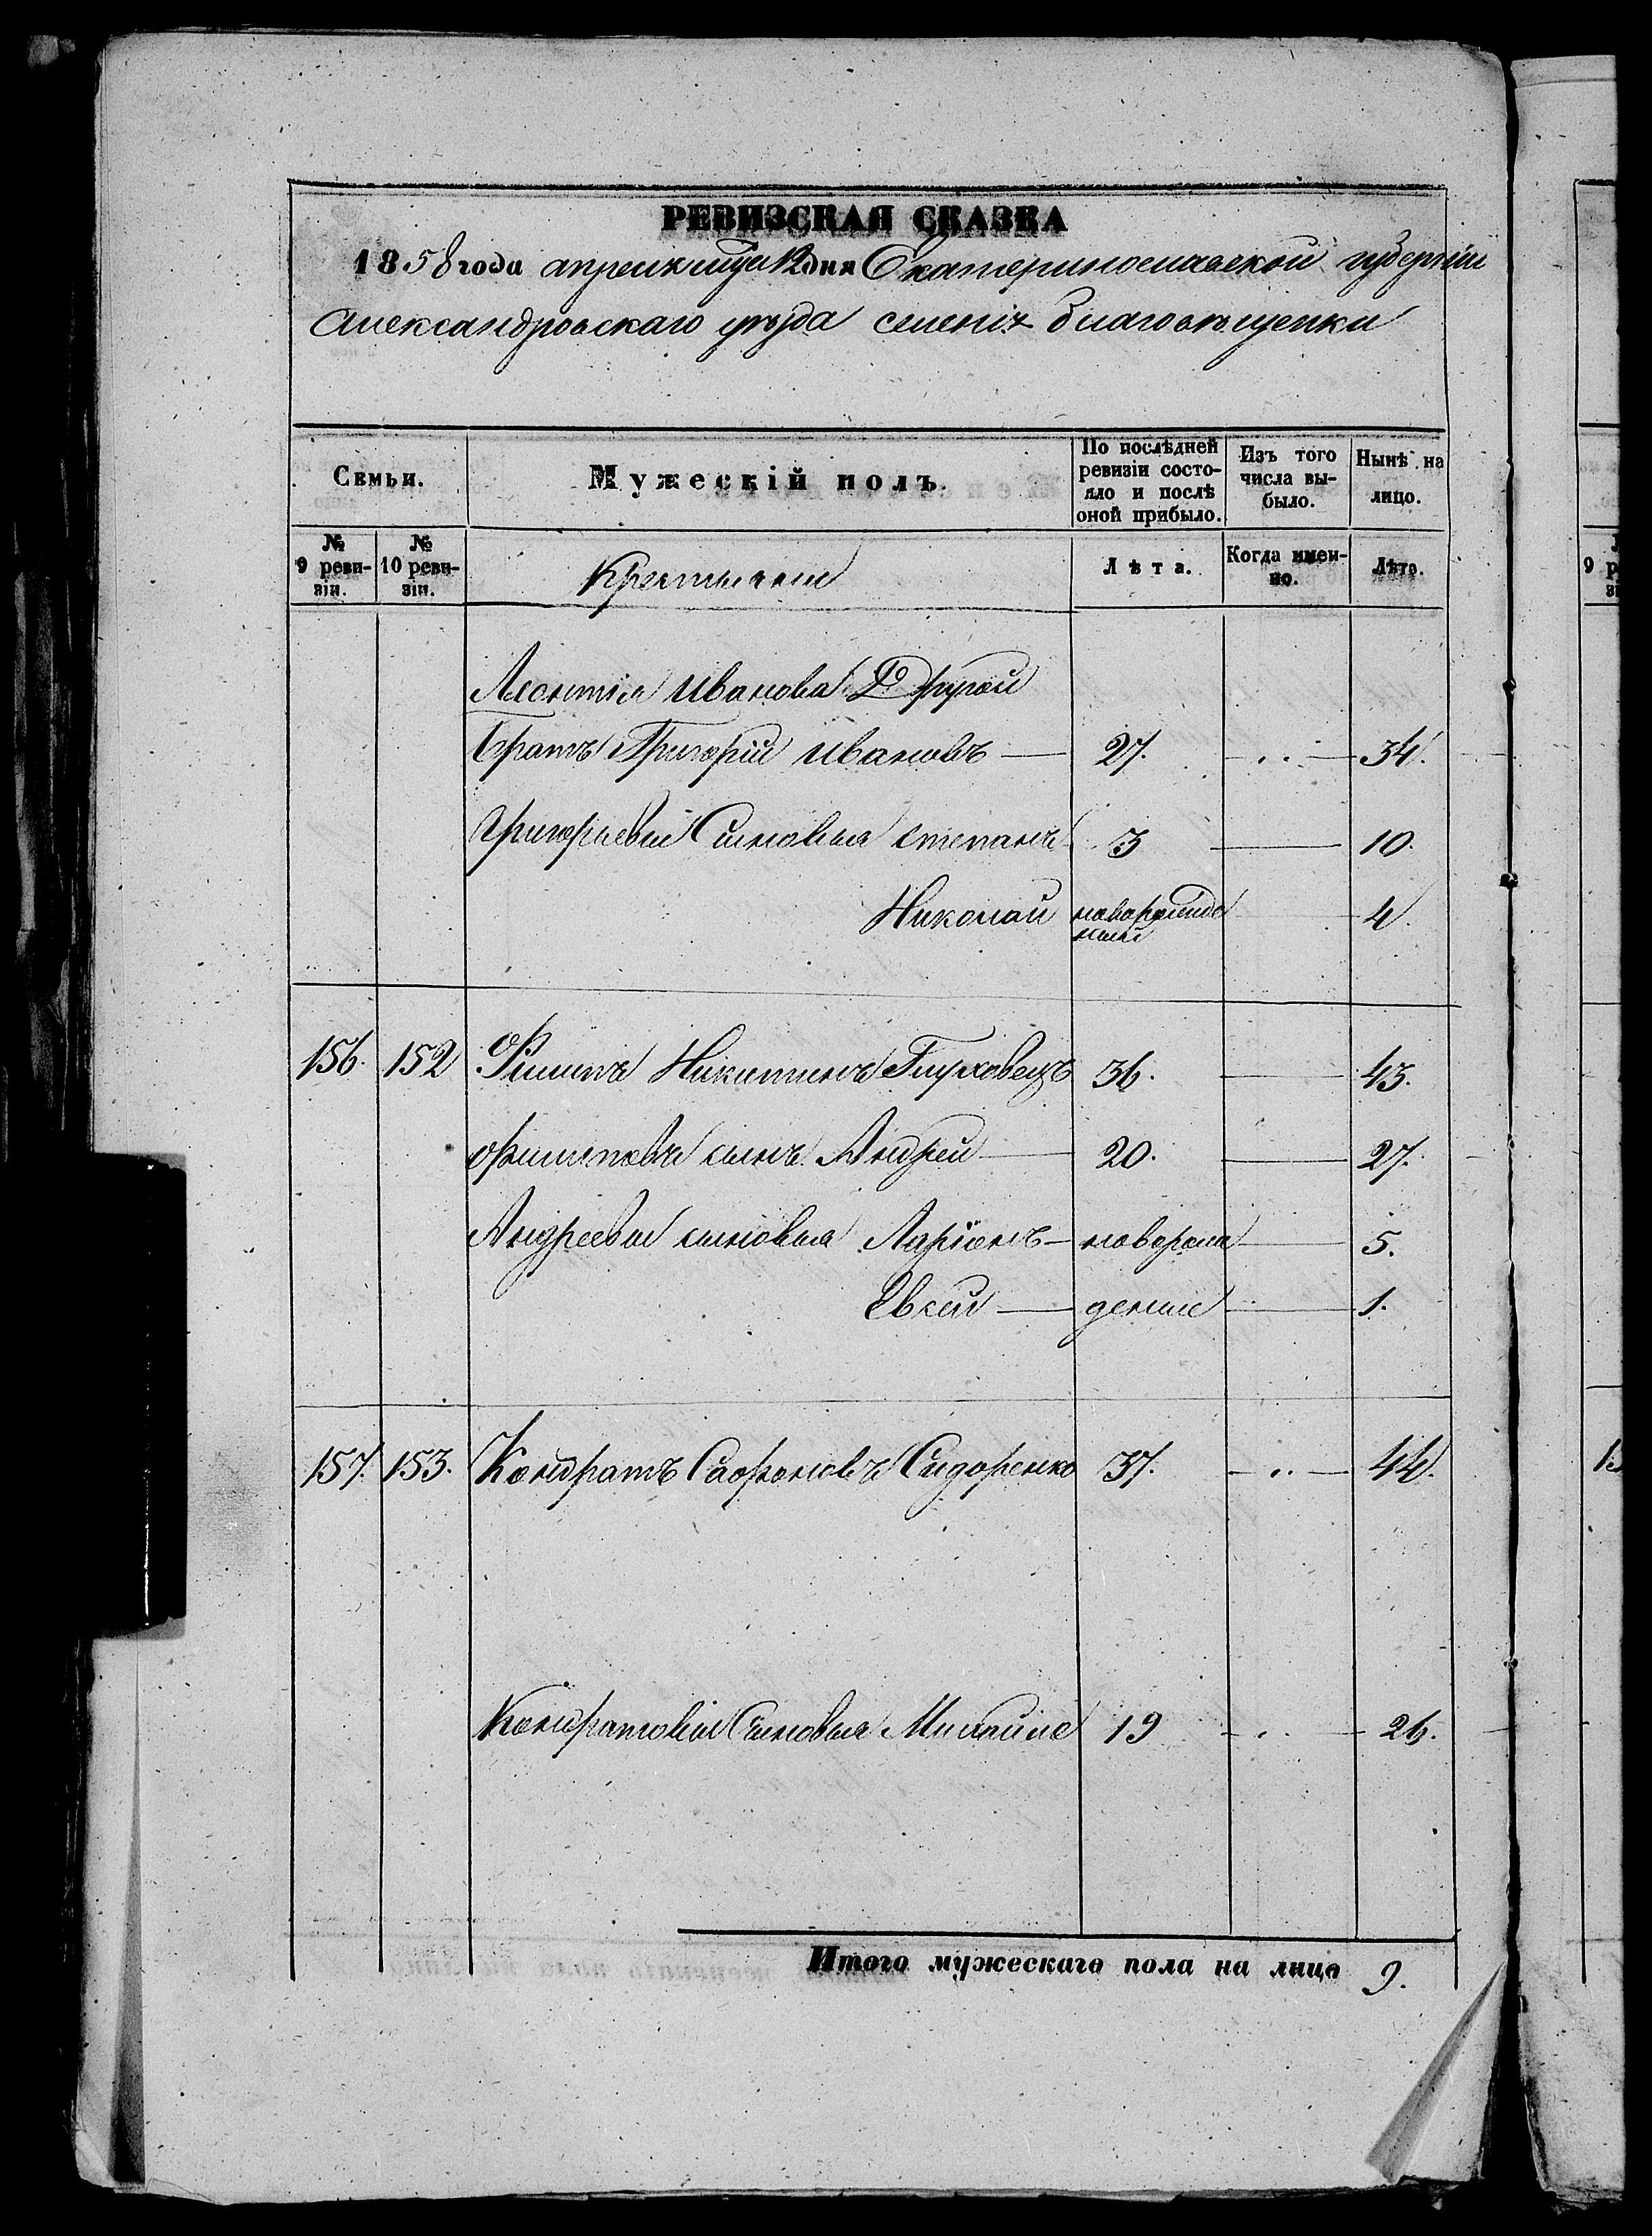 РЕВИЗСКАЯ СКАЗКА
1858 года апреля месяца 12 дня Екатеринославской губерніи
Александровскаго уѣзда селенія Благовѣщенки
Семьи.
Мужескій полъ.
По послѣдней ревизіи состояло и послѣ оной прибыло.
Изъ того числа выбыло.
Нынѣ на лицо.
№ 9 ревизіи.
№ 10 ревизіи.
Крестьяне
Лѣта.
Когда именно.
Лѣта.
Леонтія Иванова Другой
Братъ Григорій Ивановъ — 27. — 34.
Григорьевы Сыновья Степанъ 3 — 10.
Николай новорожденный 4
156. 152 Филипъ Никитинъ Глуховецъ 36. — 43.
Филиповъ сынъ Андрей — 20. — 27.
Андреевы сыновья Ларіонъ — новорож — 5.
Евсей — дение — 1.
157. 153. Кондратъ Сафоновъ Сидоренко 37. — 44.
Кондратовы Сыновья Михайло 19 — 26.
Итого мужескаго пола на лицо 9.
9 р
15